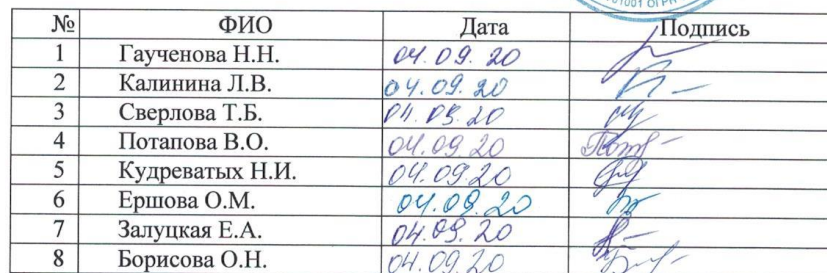 1001 ОГРН
№ ФИО Дата Подпись
1 Гаученова Н.Н. 04.09.20
2 Калинина Л.В. 04.09.20
3 Сверлова Т.Б. 04.09.20
4 Потапова В.О. 04.09.20
5 Кудреватых Н.И. 04.09.20
6 Ершова О.М. 04.09.20
7 Залуцкая Е.А. 04.09.20
8 Борисова О.Н. 04.09.20